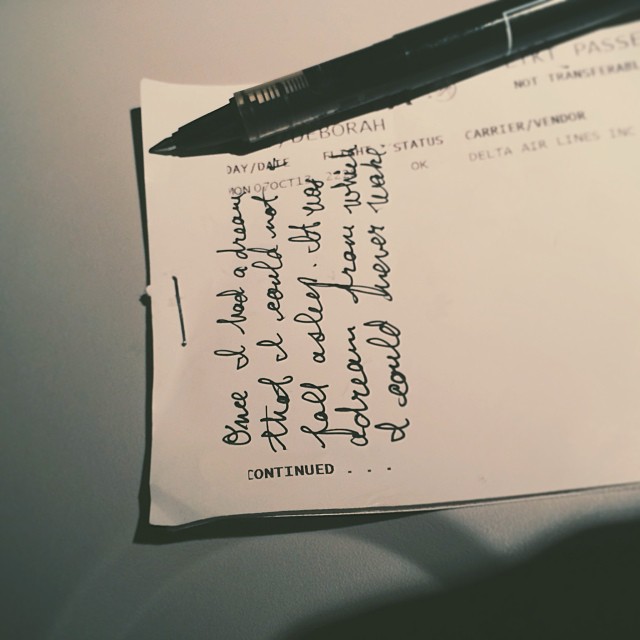 TKT PASSE
NOT TRANSFERABL
/DEBORAH
DAY/DATE FLIGHT STATUS CARRIER/VENDOR
MON 07OCT13 OK DELTA AIR LINES INC
Once I had a dream
that I could not
fall asleep. It was
a dream from which
I could never wake.
CONTINUED . . .